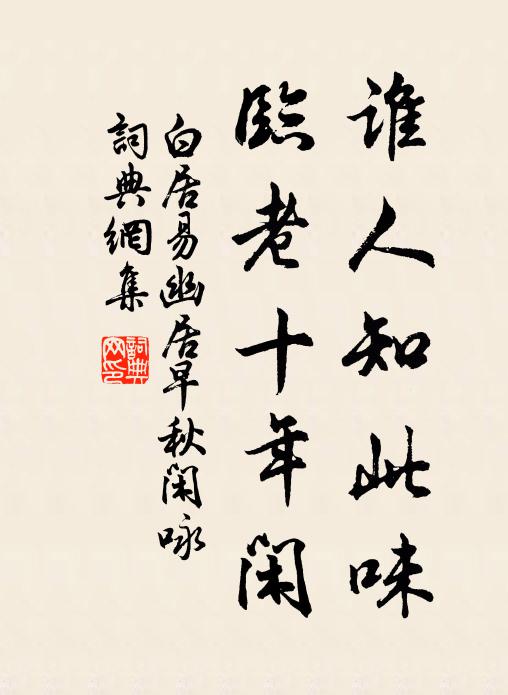 誰人知此味
臨老十年閑
白居易幽居早秋閑咏
詞典網集
詞典
网印